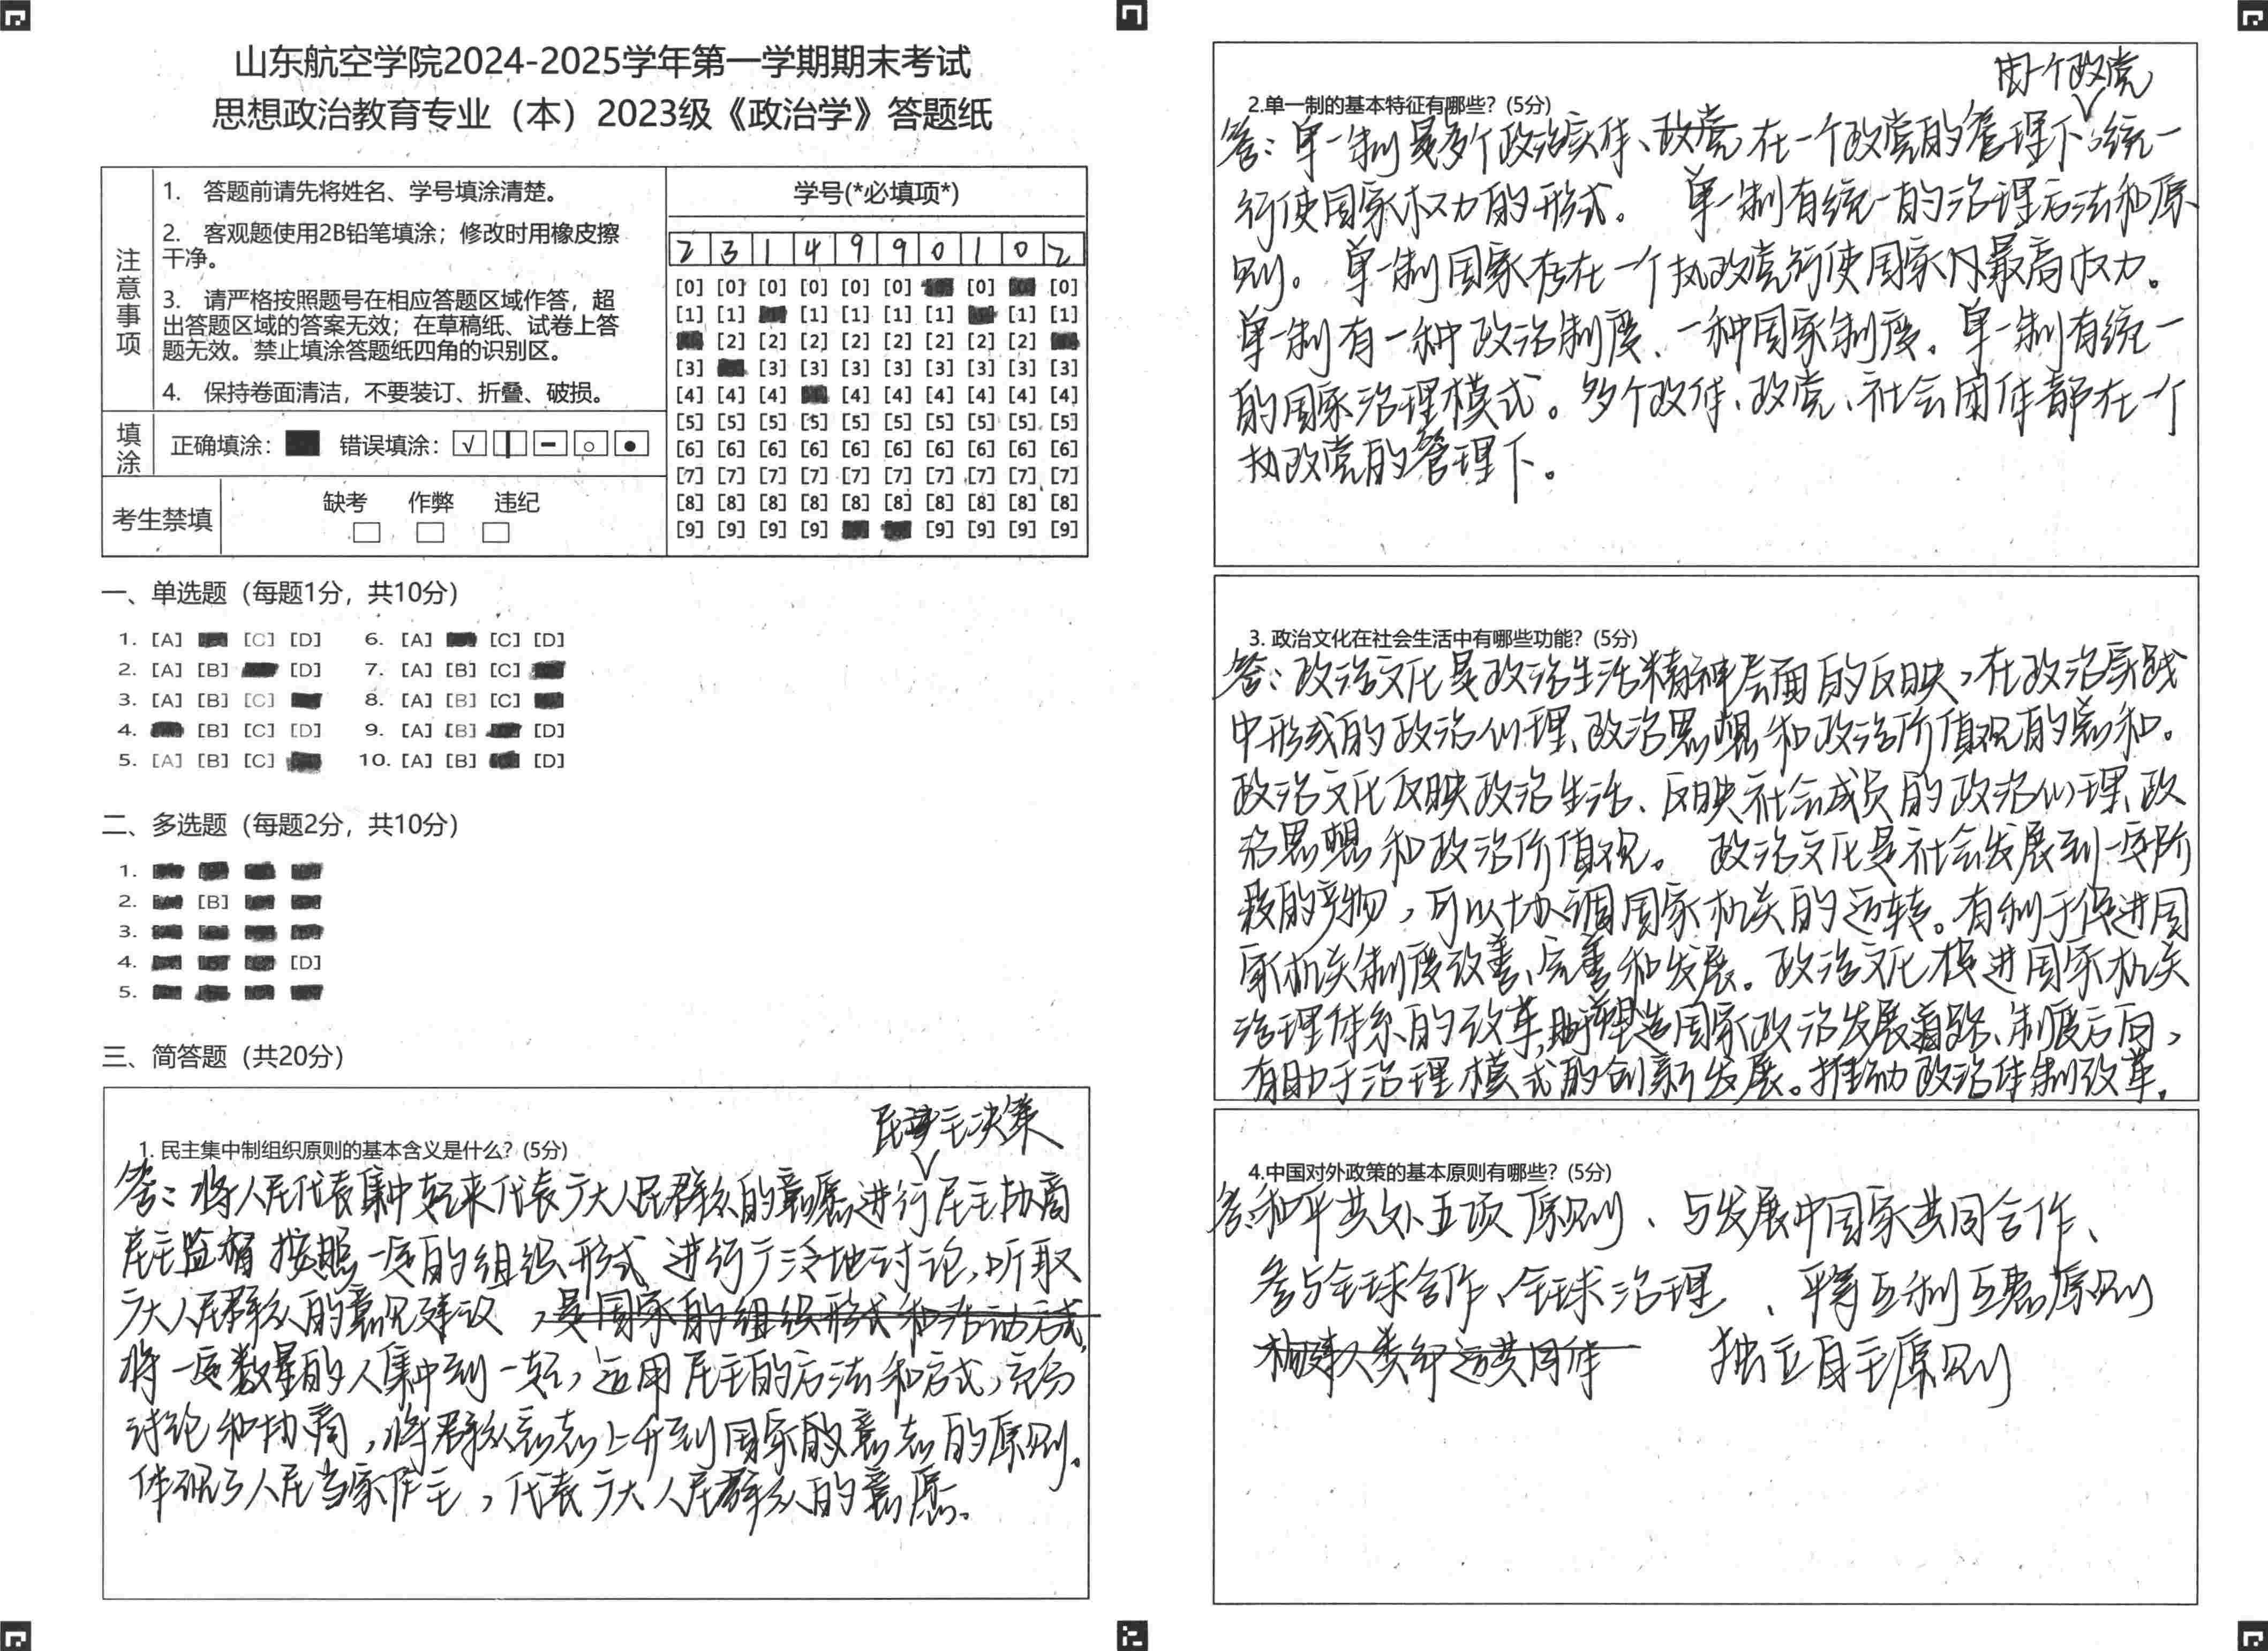 山东航空学院2024-2025学年第一学期期末考试
思想政治教育专业（本）2023级《政治学》答题纸
注意事项
1. 答题前请先将姓名、学号填涂清楚。
2. 客观题使用2B铅笔填涂；修改时用橡皮擦
干净。
3. 请严格按照题号在相应答题区域作答，超
出答题区域的答案无效；在草稿纸、试卷上答
题无效。禁止填涂答题纸四角的识别区。
4. 保持卷面清洁，不要装订、折叠、破损。
填涂
正确填涂： 错误填涂：
考生禁填
缺考 作弊 违纪
学号(*必填项*)
2 3 1 4 9 9 0 1 0 2
[0] [0] [0] [0] [0] [0] [0] [0]
[1] [1] [1] [1] [1] [1] [1] [1]
[2] [2] [2] [2] [2] [2] [2] [2]
[3] [3] [3] [3] [3] [3] [3] [3] [3]
[4] [4] [4] [4] [4] [4] [4] [4] [4]
[5] [5] [5] [5] [5] [5] [5] [5] [5] [5]
[6] [6] [6] [6] [6] [6] [6] [6] [6] [6]
[7] [7] [7] [7] [7] [7] [7] [7] [7] [7]
[8] [8] [8] [8] [8] [8] [8] [8] [8] [8]
[9] [9] [9] [9] [9] [9] [9] [9]
一、单选题（每题1分，共10分）
1. [A] [C] [D] 6. [A] [C] [D]
2. [A] [B] [D] 7. [A] [B] [C]
3. [A] [B] [C] 8. [A] [B] [C]
4. [B] [C] [D] 9. [A] [B] [D]
5. [A] [B] [C] 10. [A] [B] [D]
二、多选题（每题2分，共10分）
1.
2. [B]
3.
4. [D]
5.
三、简答题（共20分）
民主决策
1. 民主集中制组织原则的基本含义是什么？(5分)
答：将人民代表集中起来代表广大人民群众的意愿进行民主协商
民主监督 按照一定的组织形式 进行广泛地讨论，听取
广大人民群众的意见建议，是国家的组织形式和活动方式，
将一定数量的人集中到一起，运用民主的方法和方式，充分
讨论和协商，将群众意志上升到国家的意志的原则。
体现了人民当家作主，代表广大人民群众的意愿。
由一个政党
2.单一制的基本特征有哪些？(5分)
答：单一制是多个政治实体、政党在一个政党的管理下统一
行使国家权力的形式。 单一制有统一的治理方法和原
则。 单一制国家存在一个执政党行使国家内最高权力。
单一制有一种政治制度、一种国家制度。单一制有统一
的国家治理模式。多个政体、政党、社会团体都在一个
执政党的管理下。
3. 政治文化在社会生活中有哪些功能？(5分)
答：政治文化是政治生活精神层面的反映，在政治实践
中形成的政治心理、政治思想和政治价值观的总和。
政治文化反映政治生活、反映社会成员的政治心理、政
治思想和政治价值观。 政治文化是社会发展到一定阶
段的产物，可以协调国家机关的运转。有利于促进国
家机关制度改善、完善和发展。政治文化推进国家机关
治理体系的改革，塑造国家政治发展道路、制度方向，
有助于治理模式的创新发展。推动政治体制改革。
4.中国对外政策的基本原则有哪些？(5分)
答：和平共处五项原则、与发展中国家共同合作、
参与全球合作、全球治理、平等互利互惠原则
构建人类命运共同体 独立自主原则